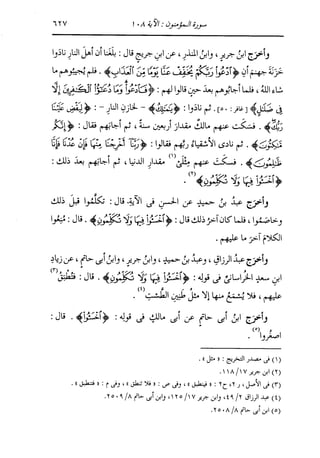 سورة المؤمنون : الآية ١٠٨
٦٢٧
وأخرج ابنُ جريرٍ ، وابنُ المنذرِ ، عن ابنِ جريجٍ قال : بلَغنا أن أهلَ النارِ نادَوا
خزنةَ جهنمَ أن ﴿ادْعُوا رَبَّكُمْ يُخَفِّفْ عَنَّا يَوْمًا مِنَ الْعَذَابِ﴾ . فلم يُجيبُوهم ما
شاء اللهُ ، فلما أجابُوهم بعدَ حينٍ قالوا لهم : ﴿فَادْعُوا وَمَا دُعَاءُ الْكَافِرِينَ إِلَّا
فِي ضَلَالٍ﴾ [غافر : ٥٠] . ثم نادَوا : ﴿يَا مَالِكُ﴾ - لخازنِ النارِ - : ﴿لِيَقْضِ عَلَيْنَا
رَبُّكَ﴾ . فسكَت عنهم مالكٌ مقدارَ أربعين سنةً ، ثم أجابَهم فقال : ﴿إِنَّكُمْ
مَاكِثُونَ﴾ . ثم نادى الأشقياءُ ربَّهم فقالوا : ﴿رَبَّنَا أَخْرِجْنَا مِنْهَا فَإِنْ عُدْنَا فَإِنَّا
ظَالِمُونَ﴾ . فسكَت عنهم مثلَى (١) مقدارِ الدنيا ، ثم أجابَهم بعدَ ذلك :
﴿اخْسَئُوا فِيهَا وَلَا تُكَلِّمُونِ﴾ (٢) .
وأخرج عبدُ بنُ حميدٍ عن الحسنِ في الآيةِ ، قال : تكلَّموا قبلَ ذلك
وخاصَموا ، فلما كان آخرُ ذلك قال : ﴿اخْسَئُوا فِيهَا وَلَا تُكَلِّمُونِ﴾ . قال : مُنِعُوا
الكلامَ آخرَ ما عليهم .
وأخرج عبدُ الرزاقِ ، وعبدُ بنُ حميدٍ ، وابنُ جريرٍ ، وابنُ أبى حاتمٍ ، عن زيادِ
ابنِ سعدٍ الخراسانىِّ في قوله : ﴿اخْسَئُوا فِيهَا وَلَا تُكَلِّمُونِ﴾ . قال : فتُطْبَقُ (٣)
عليهم ، فلا يُسْمَعُ منها إلا مثلُ طنينِ الطَّسْتِ (٤) .
وأخرج ابنُ أبى حاتمٍ عن أبى مالكٍ في قوله : ﴿اخْسَئُوا﴾ . قال :
اصغُروا (٥) .
(١) في مصدر التخريج : « مثل » .
(٢) ابن جرير ١٧/ ١١٨ .
(٣) في الأصل ، ر٢ ، ح٢ : « فينطبق » ، وفي ص : « فلا تنطق » ، وفي م : « فتنطبق » .
(٤) عبد الرزاق ٢/ ٤٩ ، وابن جرير ١٧/ ١٢٥ ، وابن أبى حاتم ٨/ ٢٥٠٩ .
(٥) ابن أبى حاتم ٨/ ٢٥٠٨ .